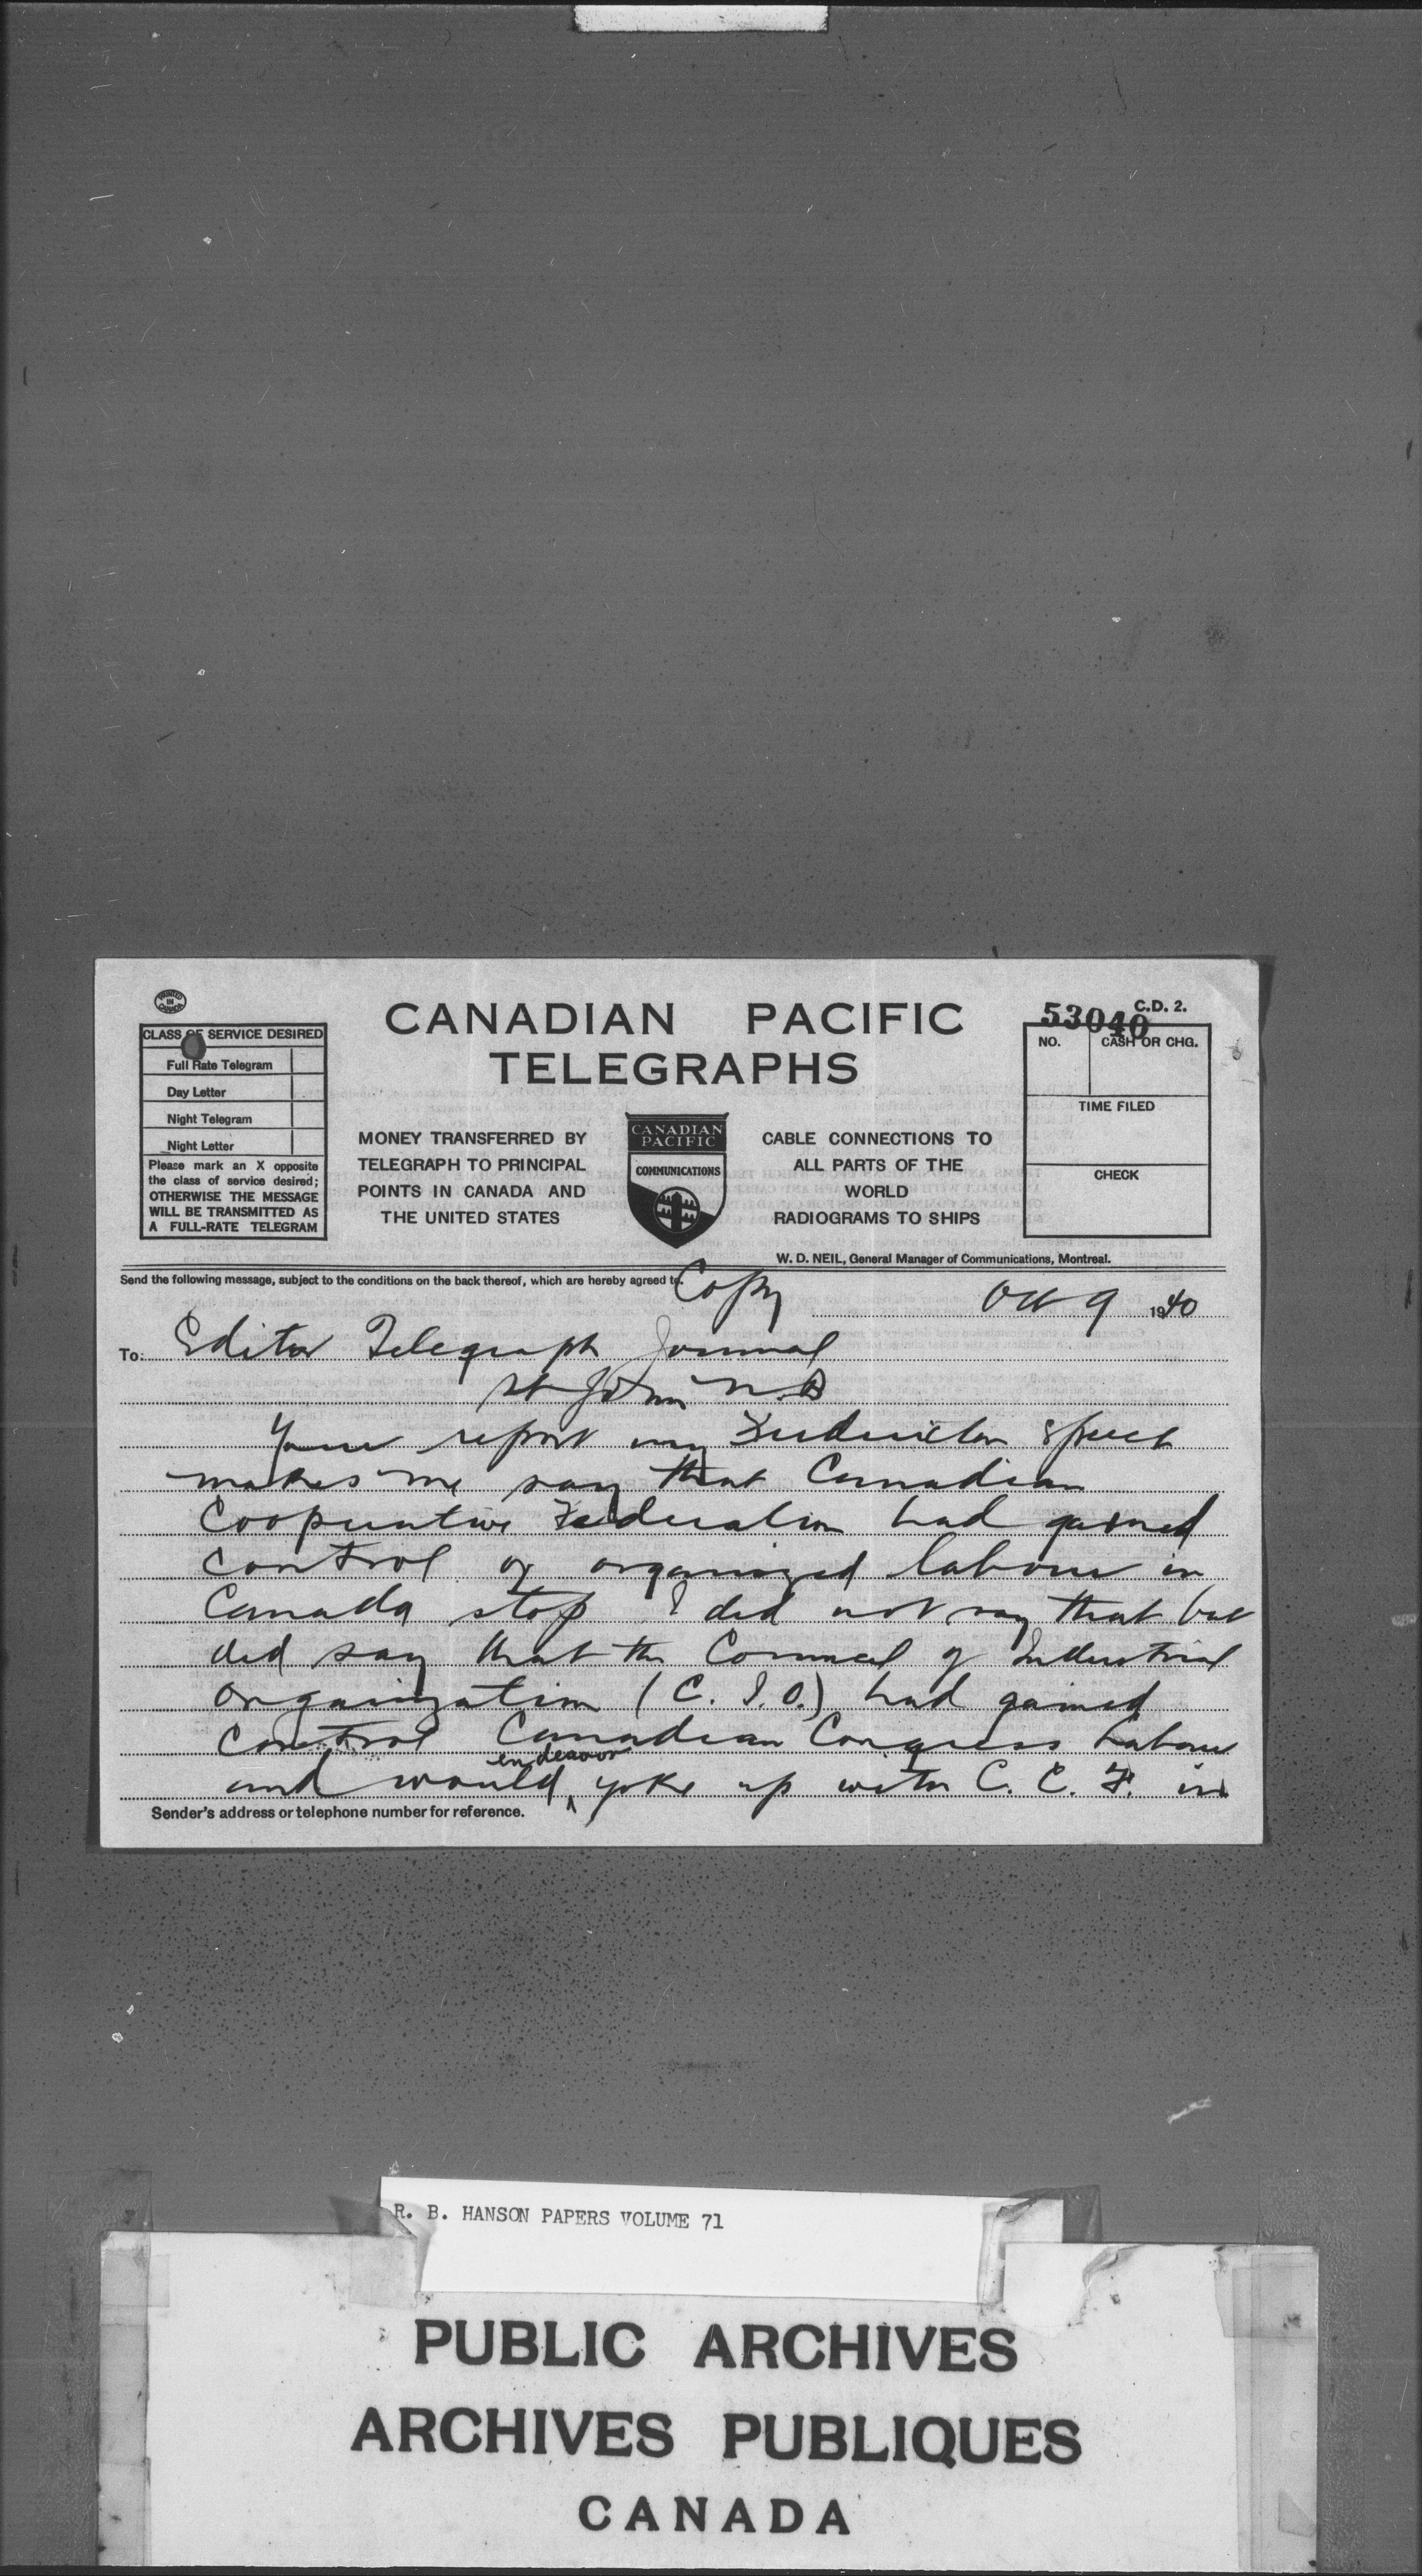 PRINTED IN CANADA
CANADIAN PACIFIC
TELEGRAPHS
53040
C.D. 2.
CLASS OF SERVICE DESIRED
Full Rate Telegram
Day Letter
Night Telegram
Night Letter
Please mark an X opposite
the class of service desired;
OTHERWISE THE MESSAGE
WILL BE TRANSMITTED AS
A FULL-RATE TELEGRAM
MONEY TRANSFERRED BY
TELEGRAPH TO PRINCIPAL
POINTS IN CANADA AND
THE UNITED STATES
CANADIAN
PACIFIC
COMMUNICATIONS
CABLE CONNECTIONS TO
ALL PARTS OF THE
WORLD
RADIOGRAMS TO SHIPS
NO.
CASH OR CHG.
TIME FILED
CHECK
W. D. NEIL, General Manager of Communications, Montreal.
Send the following message, subject to the conditions on the back thereof, which are hereby agreed to.
Copy
Oct 9 1940
To: Editor Telegraph Journal
St John N.B
Your report my Fredericton speech
makes me say that Canadian
Cooperative Federation had gained
control of organized labour in
Canada stop I did not say that but
did say that the Council of Industrial
Organization (C.I.O.) had gained
control Canadian Congress Labour
and would endeavor yoke up with C.C.F. in
Sender's address or telephone number for reference.
R. B. HANSON PAPERS VOLUME 71
PUBLIC ARCHIVES
ARCHIVES PUBLIQUES
CANADA